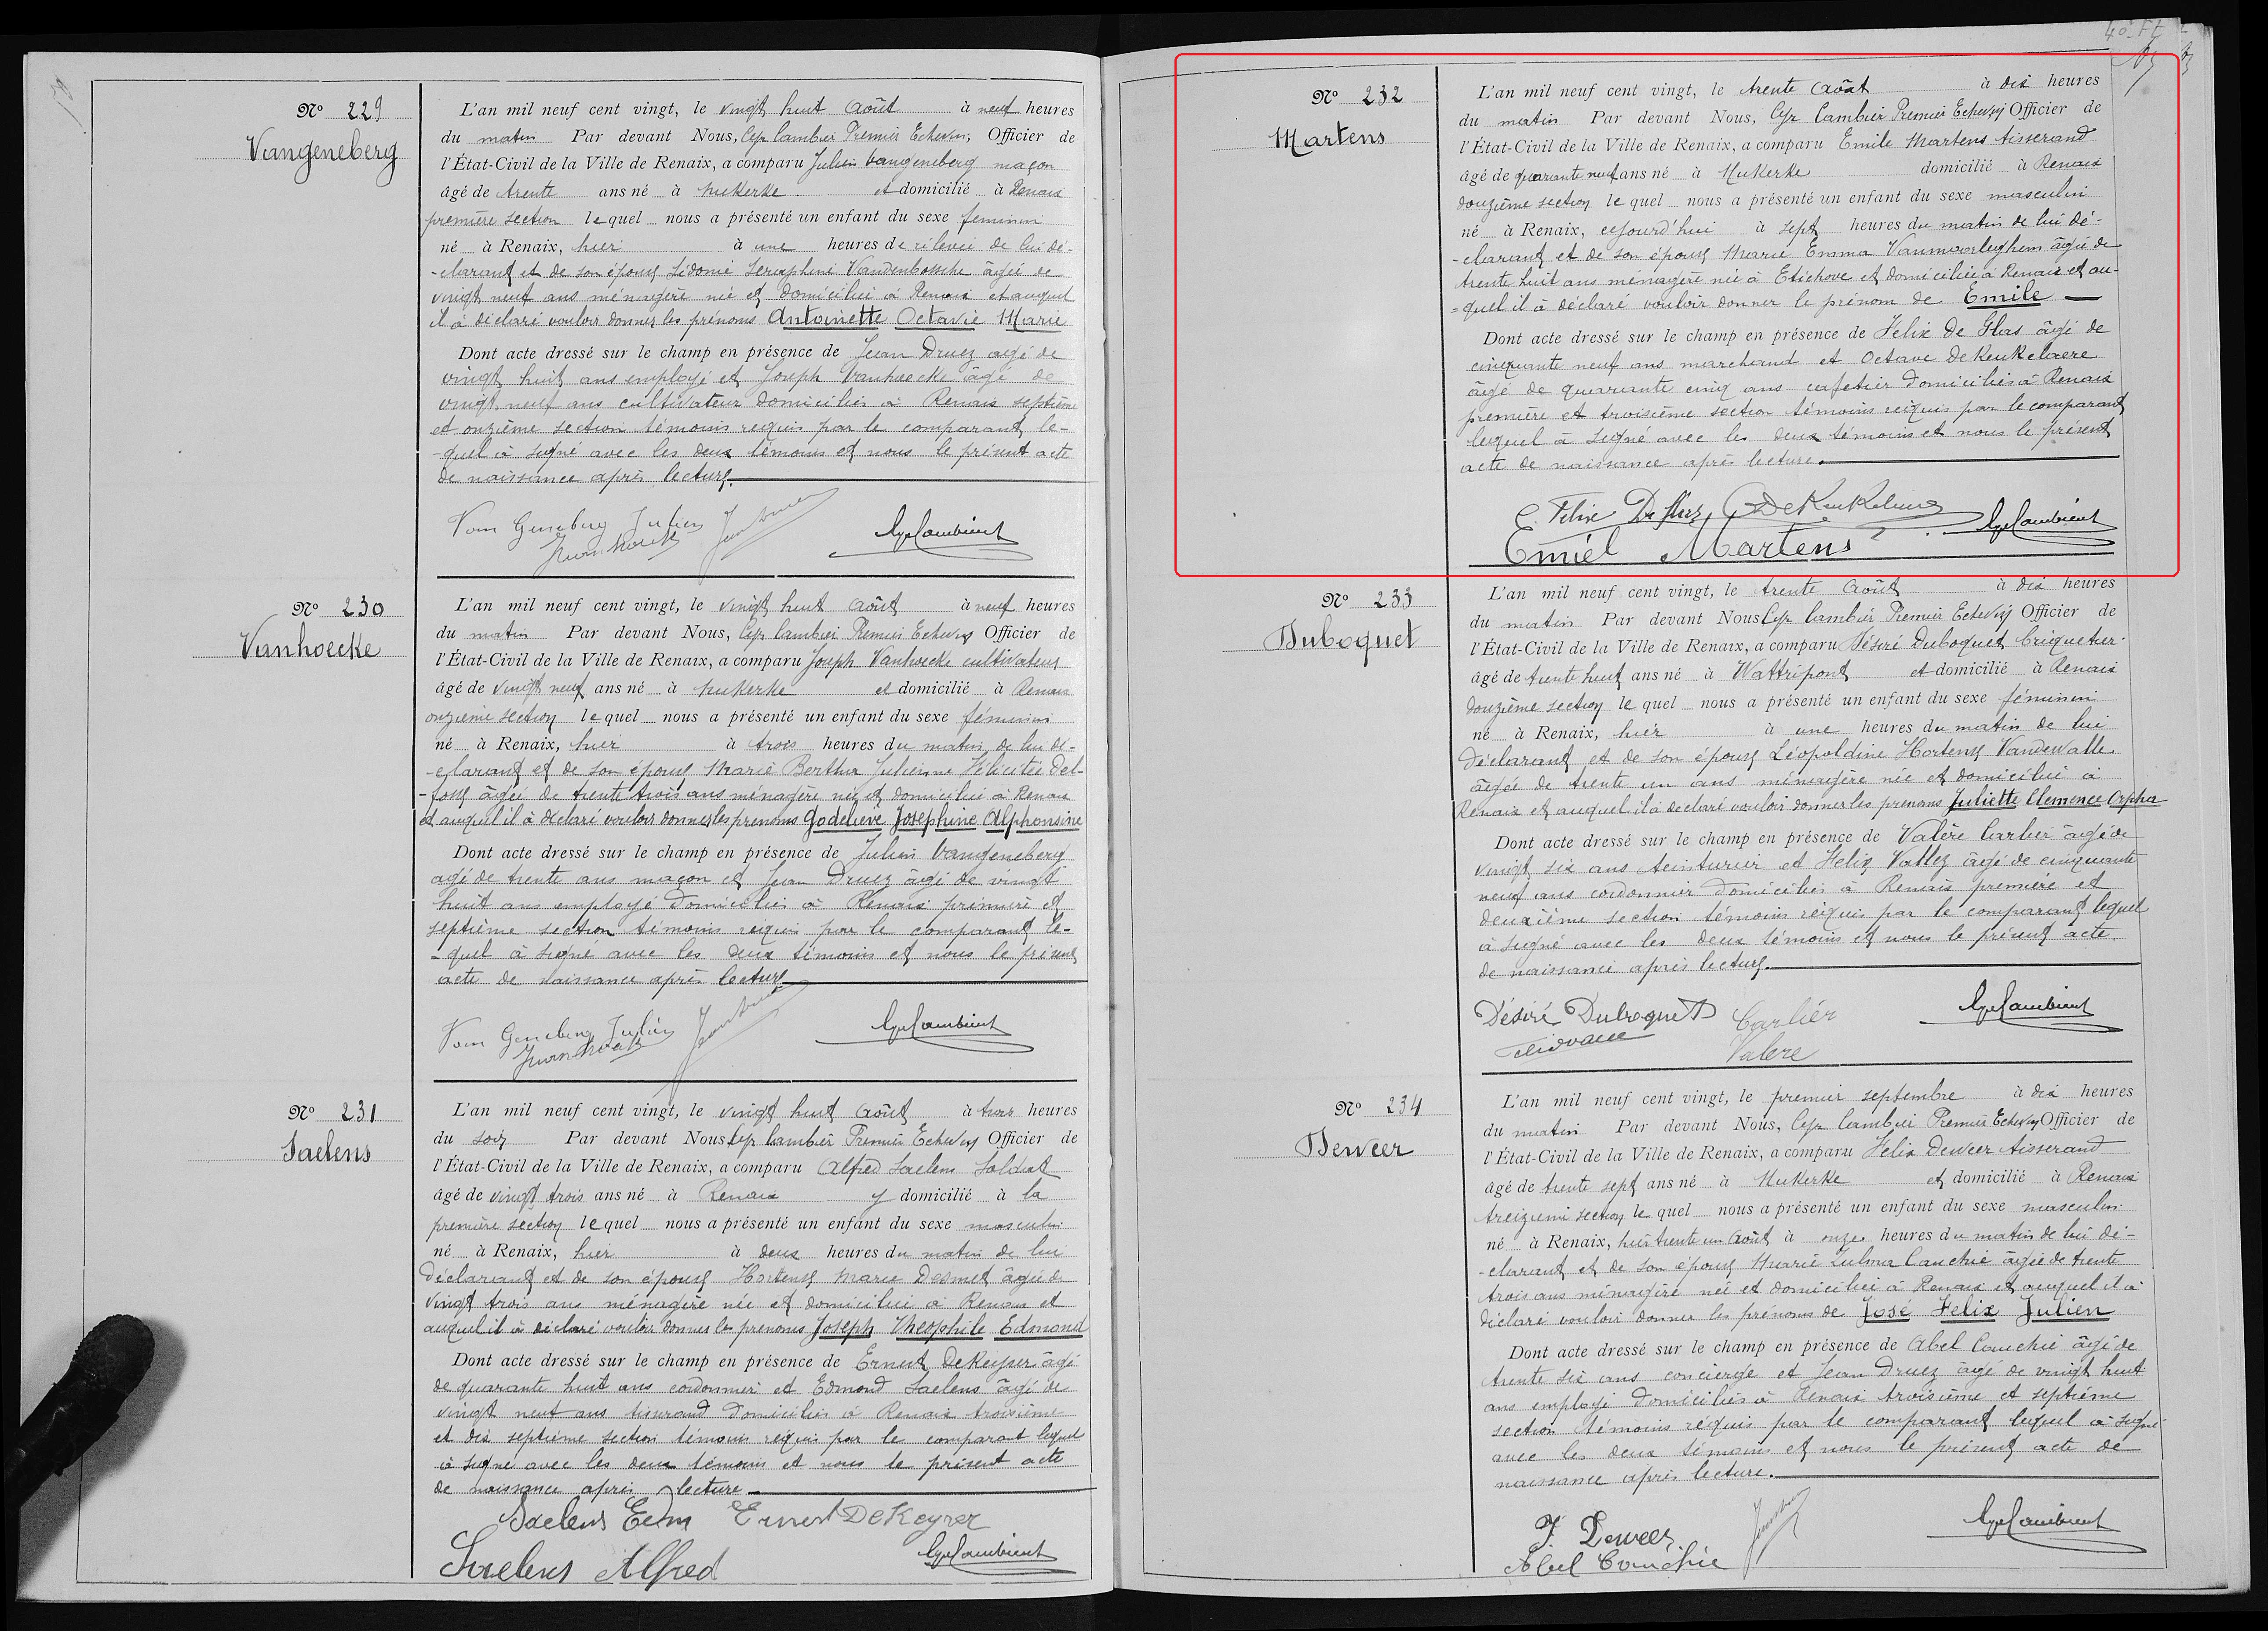 Nº 229
Vangeneberg
L'an mil neuf cent vingt, le vingt huit Août à neuf heures
du matin Par devant Nous, Cyr Cambier Premier Echevin, Officier de
l'État-Civil de la Ville de Renaix, a comparu Julien Vangeneberg maçon
âgé de trente ans né à Nukerke et domicilié à Renaix
première section lequel nous a présenté un enfant du sexe feminin
né à Renaix, hier à une heures de rélevée de lui dé-
-clarant et de son épouse Sidonie Seraphine Vandenbossche âgée de
vingt neuf ans ménagère née et domiciliée à Renaix et auquel
il à déclaré vouloir donner les prénoms Antoinette Octavie Marie
Dont acte dressé sur le champ en présence de Jean Druez agé de
vingt huit ans employé et Joseph Vanhoecke âgé de
vingt neuf ans cultivateur domiciliés à Renaix septième
et onzième section témoins requis par le comparant le-
-quel à signé avec les deux témoins et nous le présent acte
de naissance après lecture.
Van Geneberg Julien
Nº 230
Vanhoecke
L'an mil neuf cent vingt, le vingt huit Août à neuf heures
du matin Par devant Nous, Cyr Cambier Premier Echevin Officier de
l'État-Civil de la Ville de Renaix, a comparu Joseph Vanhoecke cultivateur
âgé de vingt neuf ans né à Nukerke et domicilié à Renaix
onzieme section lequel nous a présenté un enfant du sexe féminin
né à Renaix, hier à trois heures du matin de lui dé-
-clarant et de son épouse Marie Berthe Julienne Félicitée Del-
-fosse âgée de trente trois ans ménagère née et domiciliée à Renaix
et auquel il à déclaré vouloir donner les prenoms Godelieve Joséphine Alphonsine
Dont acte dressé sur le champ en présence de Julien Vangeneberg
agé de trente ans maçon et Jean Druez âgé de vingt
huit ans employé domiciliés à Renaix première et
septième section témoins requis par le comparant le-
-quel à signé avec les deux témoins et nous le présent
acte de naissance après lecture
Van Geneberg Julien
Nº 231
Saelens
L'an mil neuf cent vingt, le vingt huit Août à trois heures
du soir Par devant Nous Cyr Cambier Premier Echevin Officier de
l'État-Civil de la Ville de Renaix, a comparu Alfred Saelens Soldat
âgé de vingt trois ans né à Renaix y domicilié à la
première section lequel nous a présenté un enfant du sexe masculin
né à Renaix, hier à deux heures du matin de lui
déclarant et de son épouse Hortense Marie Desmet âgée de
vingt trois ans ménagère née et domiciliée à Renaix et
auquel il à déclaré vouloir donner les prenoms Joseph Theophile Edmond
Dont acte dressé sur le champ en présence de Ernest DeKeyser âgé
de quarante huit ans cordonnier et Edmond Saelens âgé de
vingt neuf ans tisserand domiciliés à Renaix troisième
et dix septième section témoins requis par le comparant lequel
à signé avec les deux témoins et nous le présent acte
de naissance après lecture
Saelens Edm Ernest DeKeyser
Saelens Alfred
Nº 232
Martens
L'an mil neuf cent vingt, le trente Août à dix heures
du matin Par devant Nous, Cyr Cambier Premier Echevin Officier de
l'État-Civil de la Ville de Renaix, a comparu Emile Martens tisserand
âgé de quarante neuf ans né à Nukerke domicilié à Renaix
douzième section lequel nous a présenté un enfant du sexe masculin
né à Renaix, cejourd'hui à sept heures du matin de lui dé-
-clarant et de son épouse Marie Emma Vanmoorleghem âgée de
trente huit ans ménagère née à Etichove et domiciliée à Renaix et au-
=quel il à déclaré vouloir donner le prénom de Emile
Dont acte dressé sur le champ en présence de Felix De Glas âgé de
cinquante neuf ans marchand et Octave DeKeukelaere
âgé de quarante cinq ans cafetier domiciliés à Renaix
première et troisième section témoins requis par le comparant
lequel à signé avec les deux témoins et nous le présent
acte de naissance après lecture.
Emiel Martens
Nº 233
Duboquet
L'an mil neuf cent vingt, le trente Août à dix heures
du matin Par devant Nous Cyr Cambier Premier Echevin Officier de
l'État-Civil de la Ville de Renaix, a comparu Désiré Duboquet briquetier
âgé de trente huit ans né à Wattripont et domicilié à Renaix
douzième section lequel nous a présenté un enfant du sexe féminin
né à Renaix, hier à une heures du matin de lui
déclarant et de son épouse Léopoldine Hortense Vandewalle
âgée de trente un ans ménagère née et domiciliée à
Renaix et auquel il à déclaré vouloir donner les prenoms Juliette Clemence Orpha
Dont acte dressé sur le champ en présence de Valère Carlier âgé de
vingt six ans teinturier et Felix Vallez âgé de cinquante
neuf ans cordonnier domiciliés à Renaix première et
deuxième section témoins réquis par le comparant lequel
à signé avec les deux témoins et nous le présent acte
de naissance après lecture.
Désiré Duboquet Carlier
Valere
Nº 234
Deweer
L'an mil neuf cent vingt, le premier septembre à dix heures
du matin Par devant Nous, Cyr Cambier Premier Echevin Officier de
l'État-Civil de la Ville de Renaix, a comparu Felix Deweer tisserand
âgé de trente sept ans né à Nukerke et domicilié à Renaix
treizieme section lequel nous a présenté un enfant du sexe masculin
né à Renaix, hier trente un Août à onze heures du matin de lui dé-
-clarant et de son épouse Marie Zulma Cauchie âgée de trente
trois ans ménagère née et domiciliée à Renaix et auquel il à
déclaré vouloir donner les prénoms de José Felix Julien
Dont acte dressé sur le champ en présence de Abel Cauchie âgé de
trente six ans concierge et Jean Druez âgé de vingt huit
ans employé domiciliés à Renaix troisième et septième
section témoins réquis par le comparant lequel à signé
avec les deux témoins et nous le présent acte de
naissance après lecture.
F. Deweer
Abel Cauchie